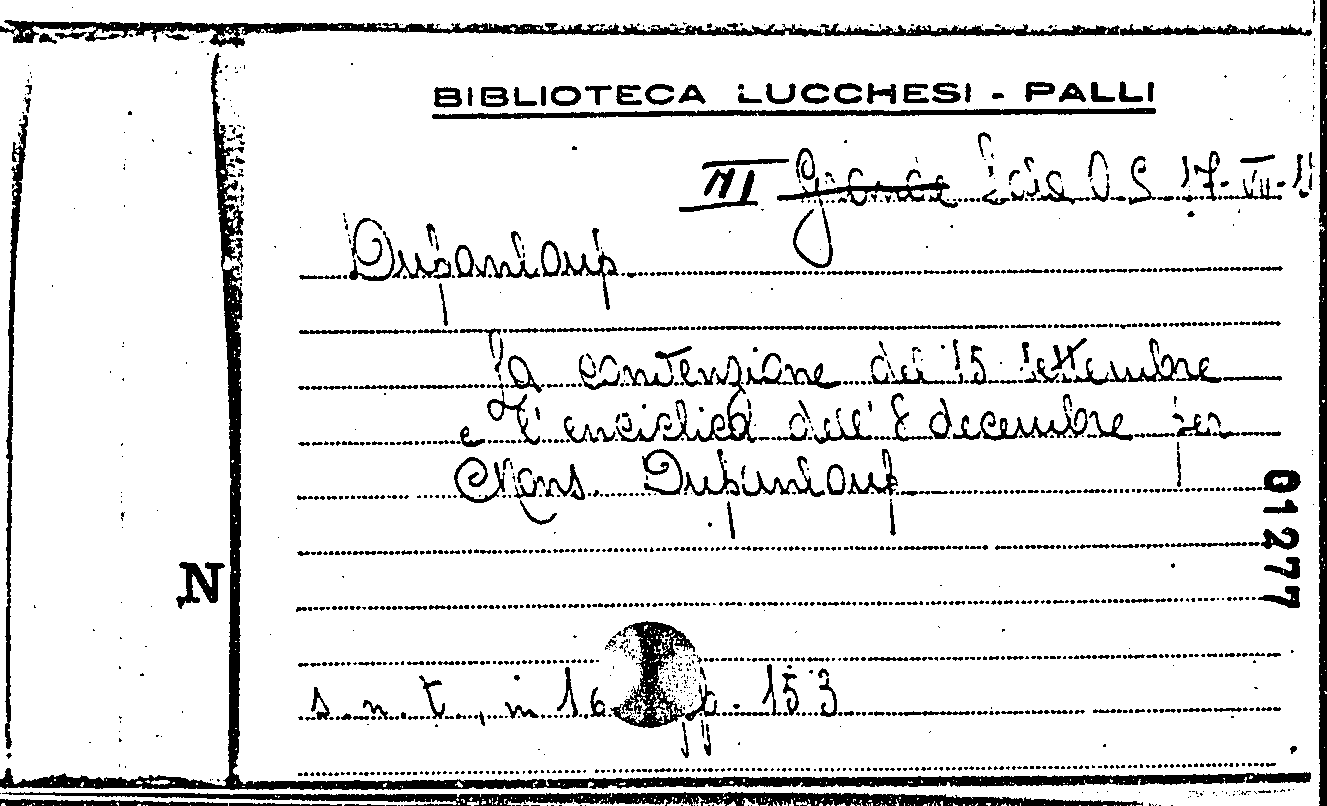 BIBLIOTECA LUCCHESI - PALLI
III Grande Sala O S 17-VII-1
Dupanloup.
La contenzione del 15 settembre
e l'enciclica dell' 8 decembre per
Mons. Dupanloup.
01277
N
s. n. t., in 16 pp. 153